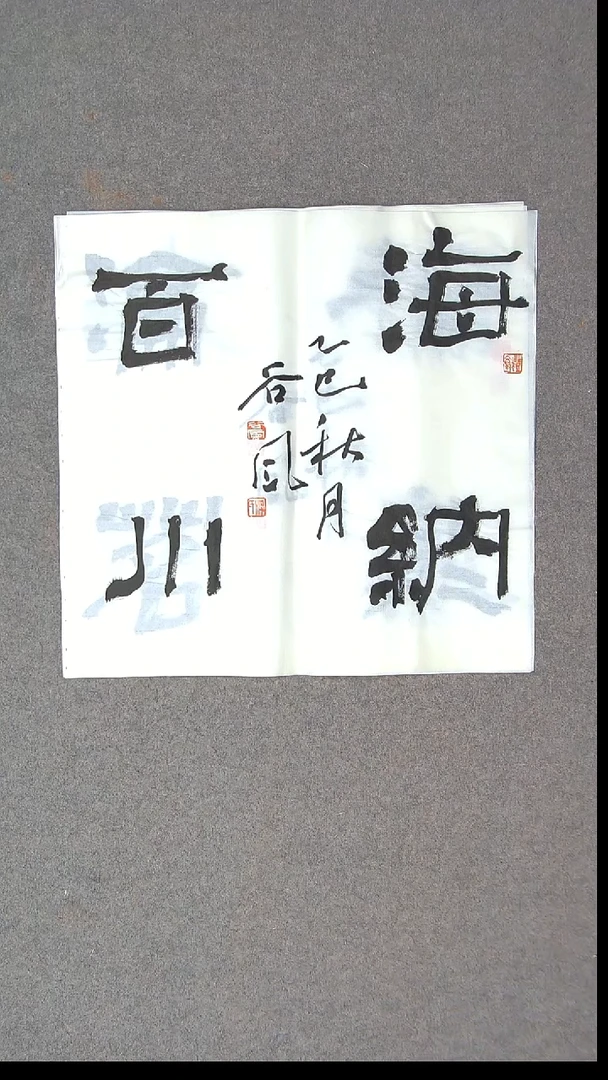 海納
百川
乙巳秋月
谷风